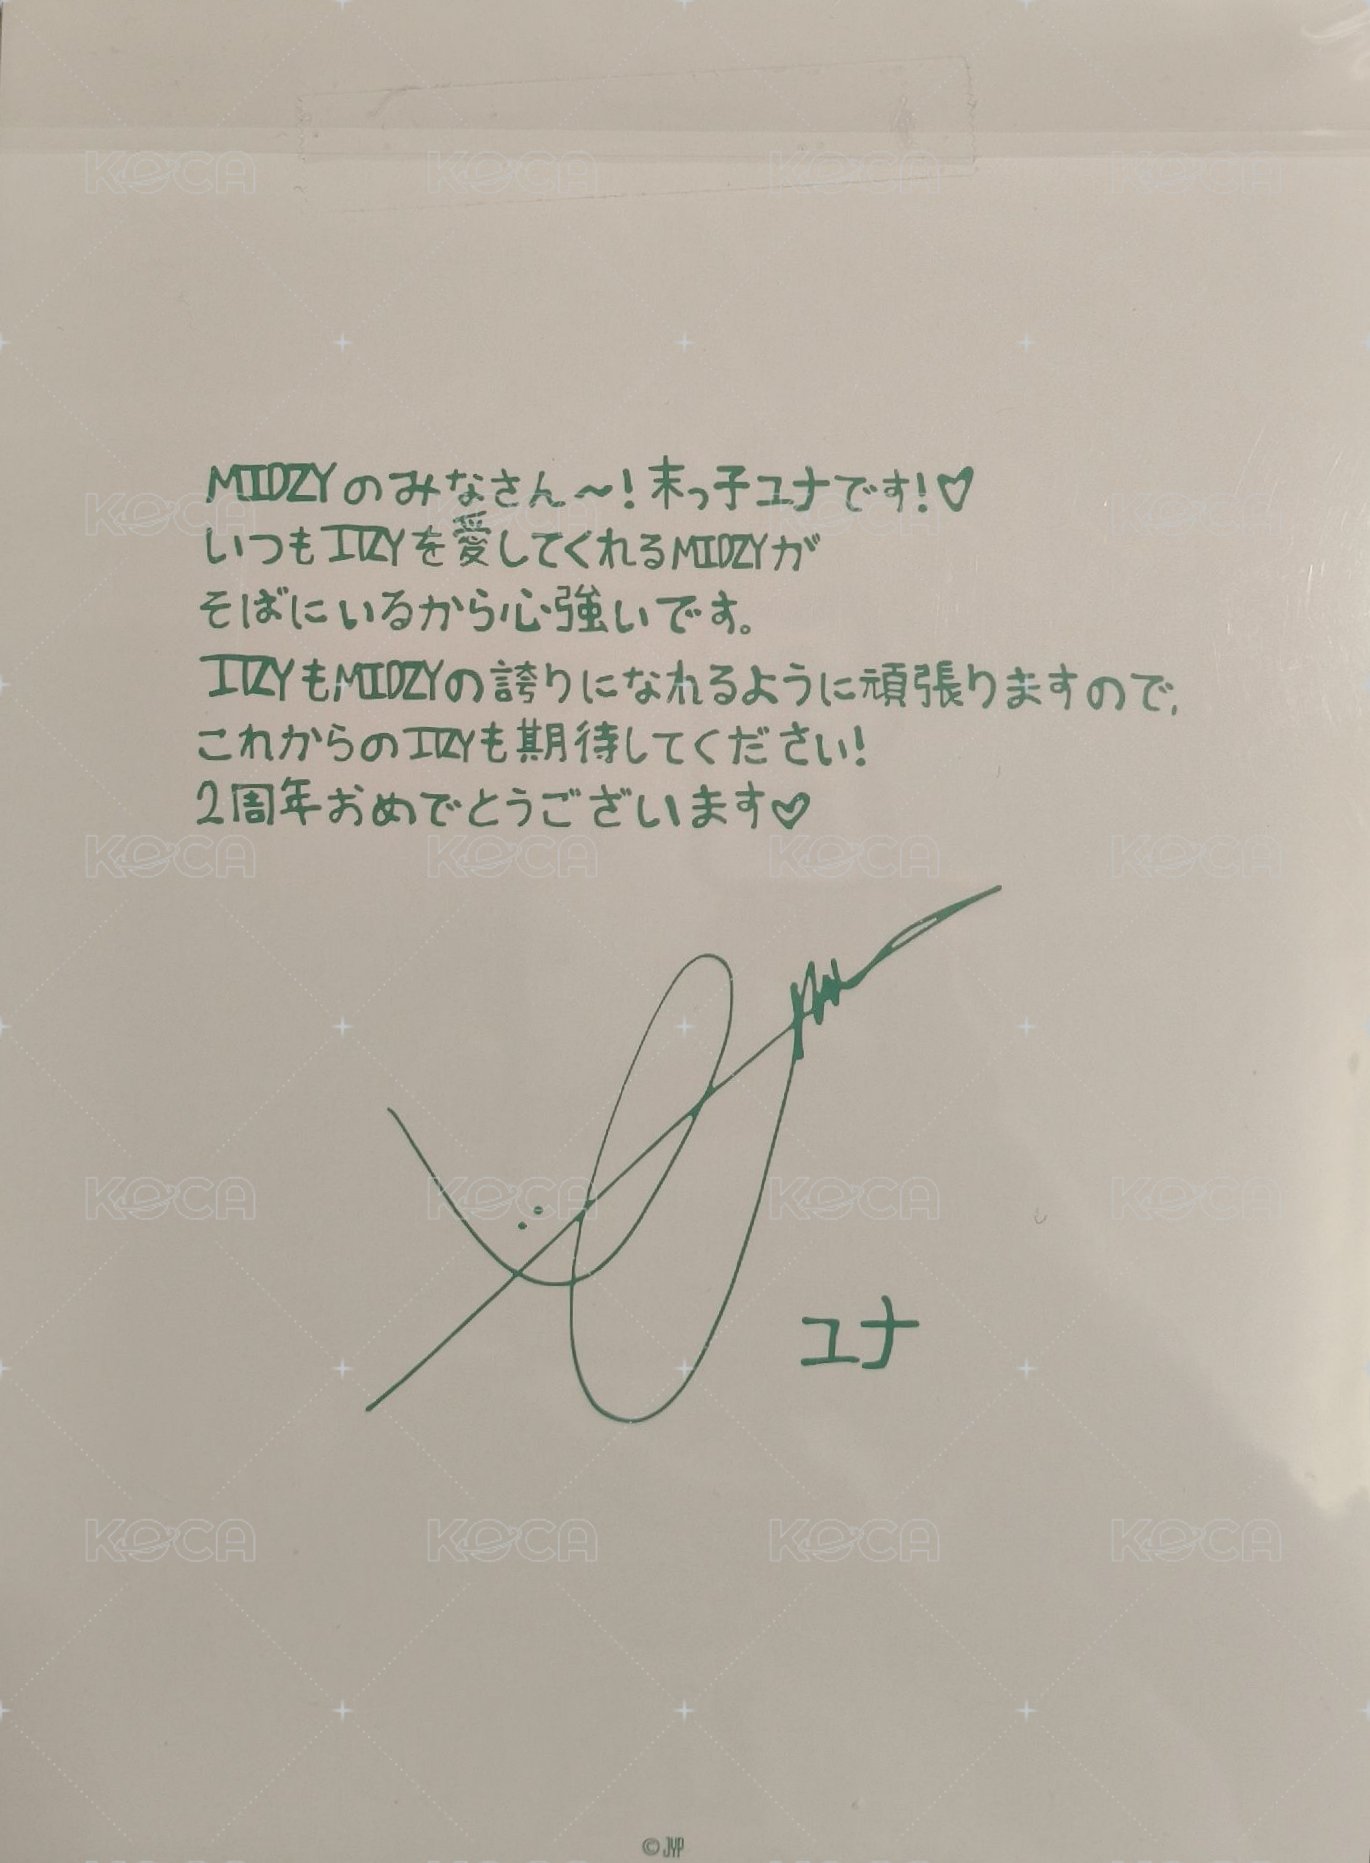 MIDZYのみなさん～!末っ子ユナです!♡
いつもITZYを愛してくれるMIDZYが
そばにいるから心強いです。
ITZYもMIDZYの誇りになれるように頑張りますので、
これからのITZYも期待してください!
2周年おめでとうございます♡
ユナ
© JYP
KOCA